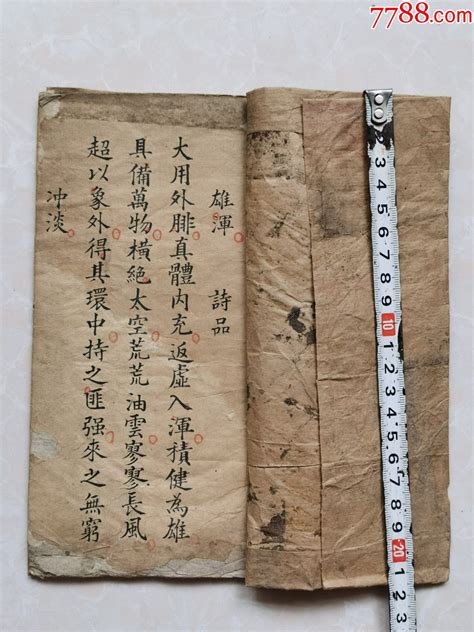 7788.com
雄渾 詩品
大用外腓真體内充返虛入渾積健為雄
具備萬物橫絕太空荒荒油雲寥寥長風
超以象外得其環中持之匪强來之無窮
沖淡
2 3 4 5 6 7 8 9 10 1 2 3 4 5 6 7 8 9 20 1 2 3